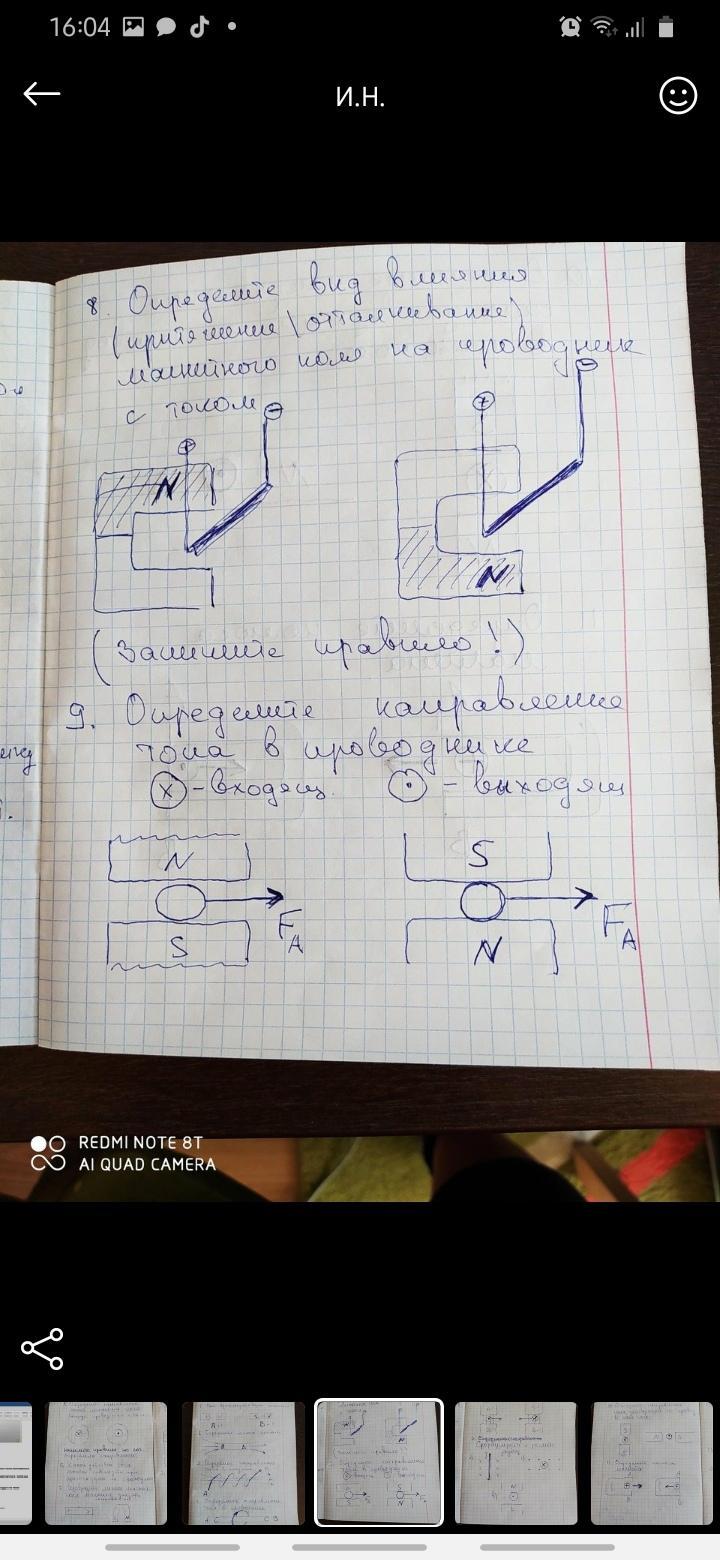 16:04
И.Н.
8. Определите вид влияния
(притяжение \ отталкивание)
магнитного поля на проводник
с током
+ −
N
+ −
N
(Запишите правило!)
9. Определите направление
тока в проводнике
x - входящ. · - выходящ
N
S
FA
S
N
FA
REDMI NOTE 8T
AI QUAD CAMERA